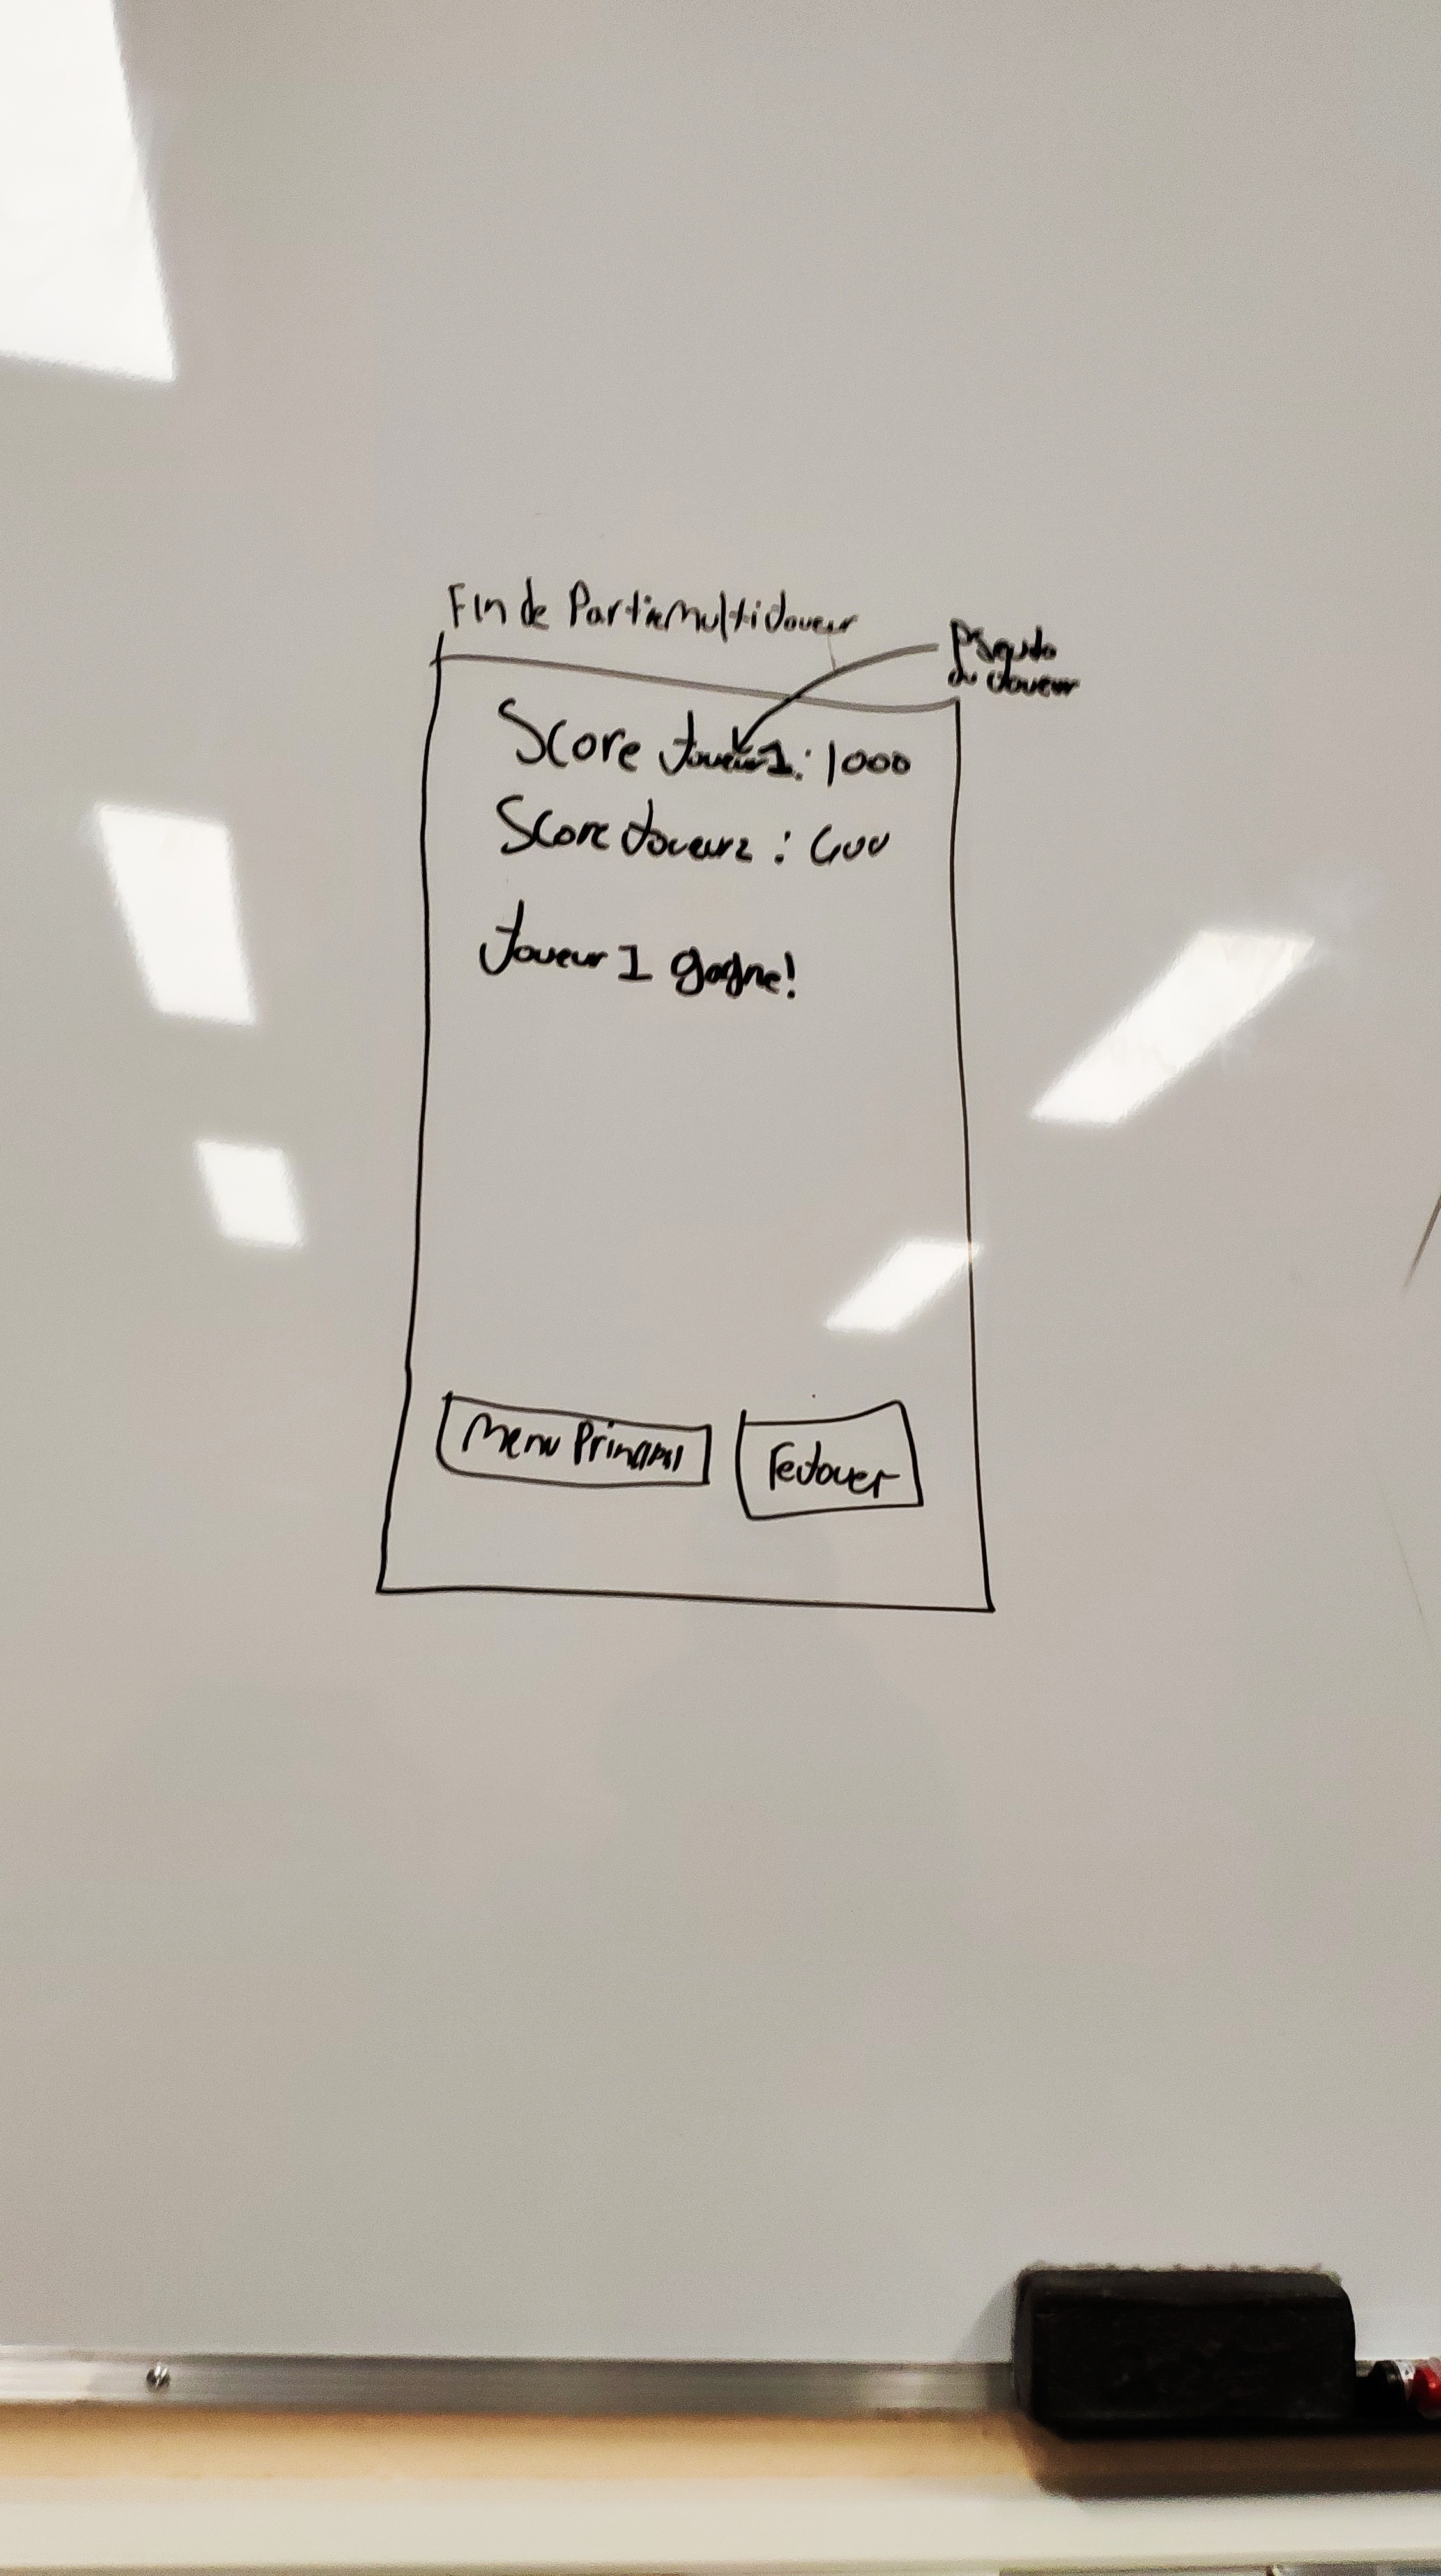 Fin de Partie multijoueur
Pseudo
du Joueur
Score Joueur 1 : 1000
Score Joueur 2 :
Joueur 1 gagne!
Menu Principal
rejouer